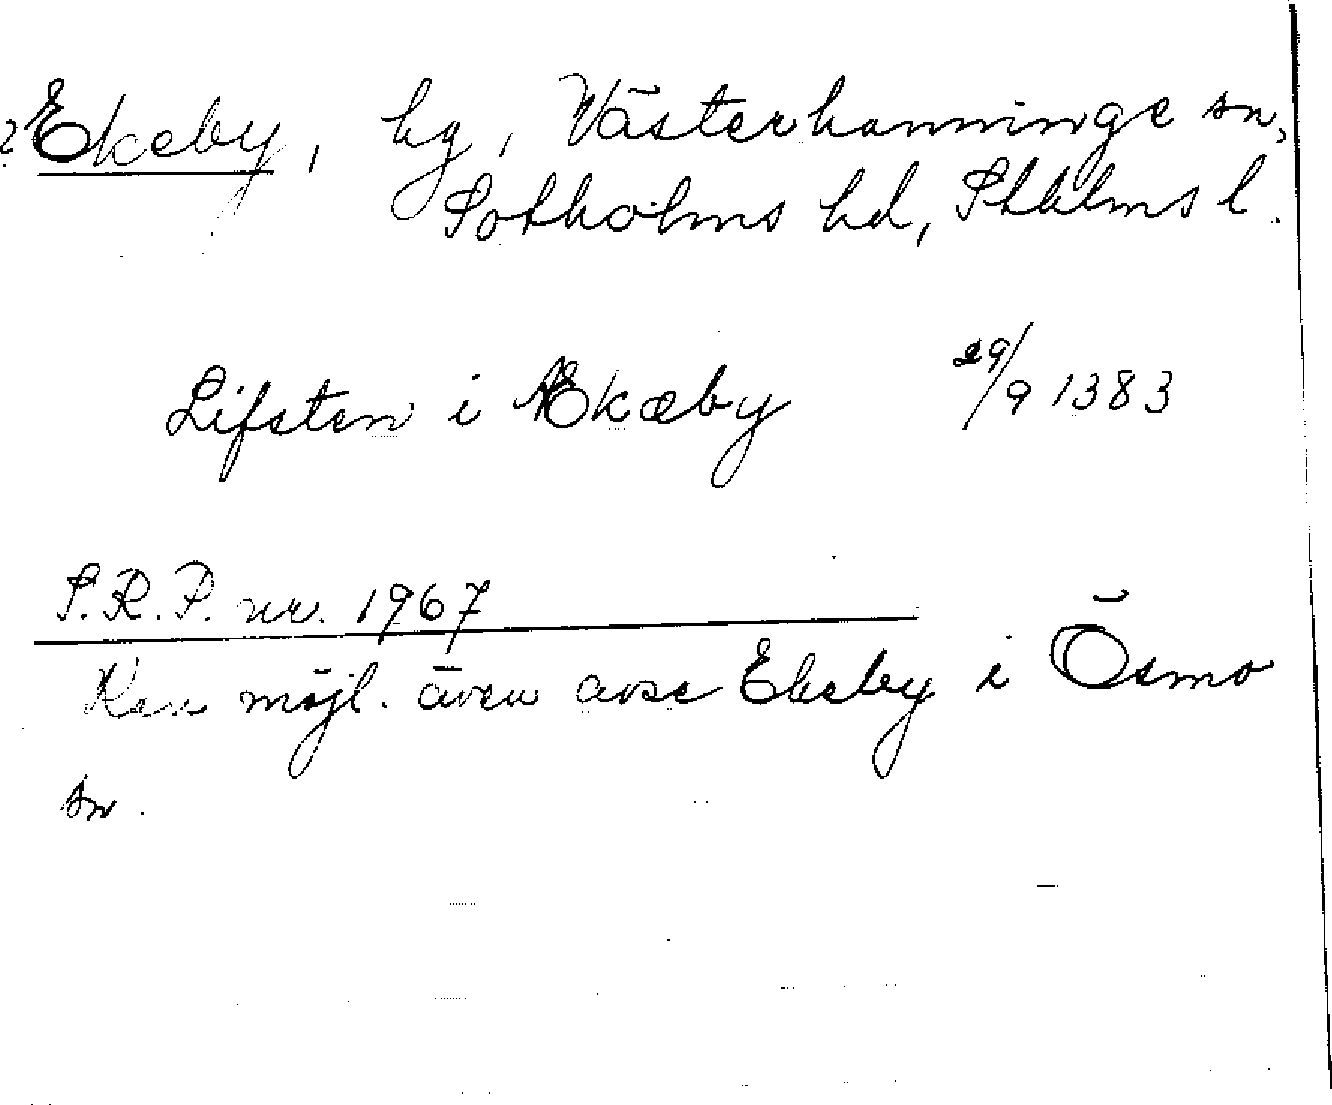 ? Ekeby, hg, Västerhanninge sn,
Sotholms hd, Sthlms l.
Lifsten i Ekæby 29/9 1383
S.R.P. nr. 1967
Kan möjl. även avse Ekeby i Ösmo
sn.